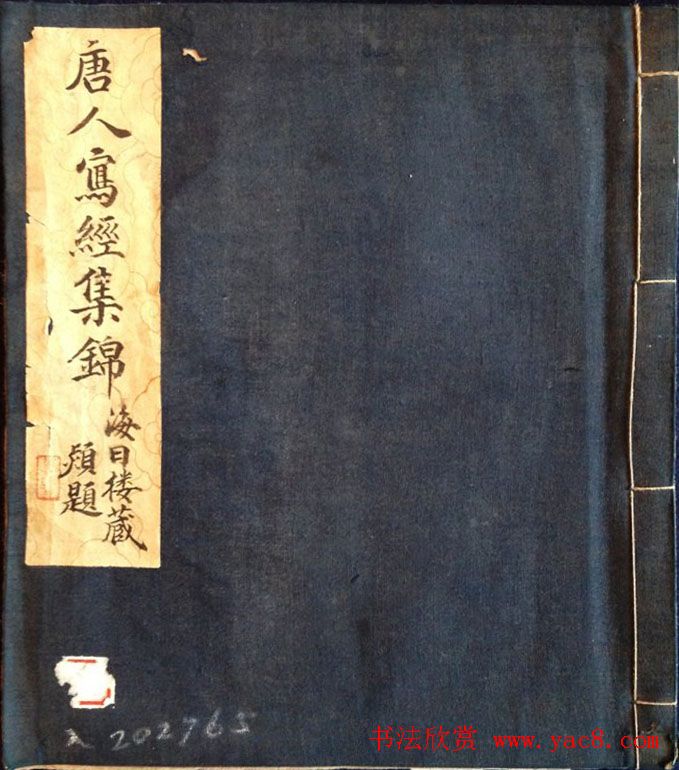 唐人寫經集錦
海日楼藏
頌題
202765
书法欣赏 www.yac8.com